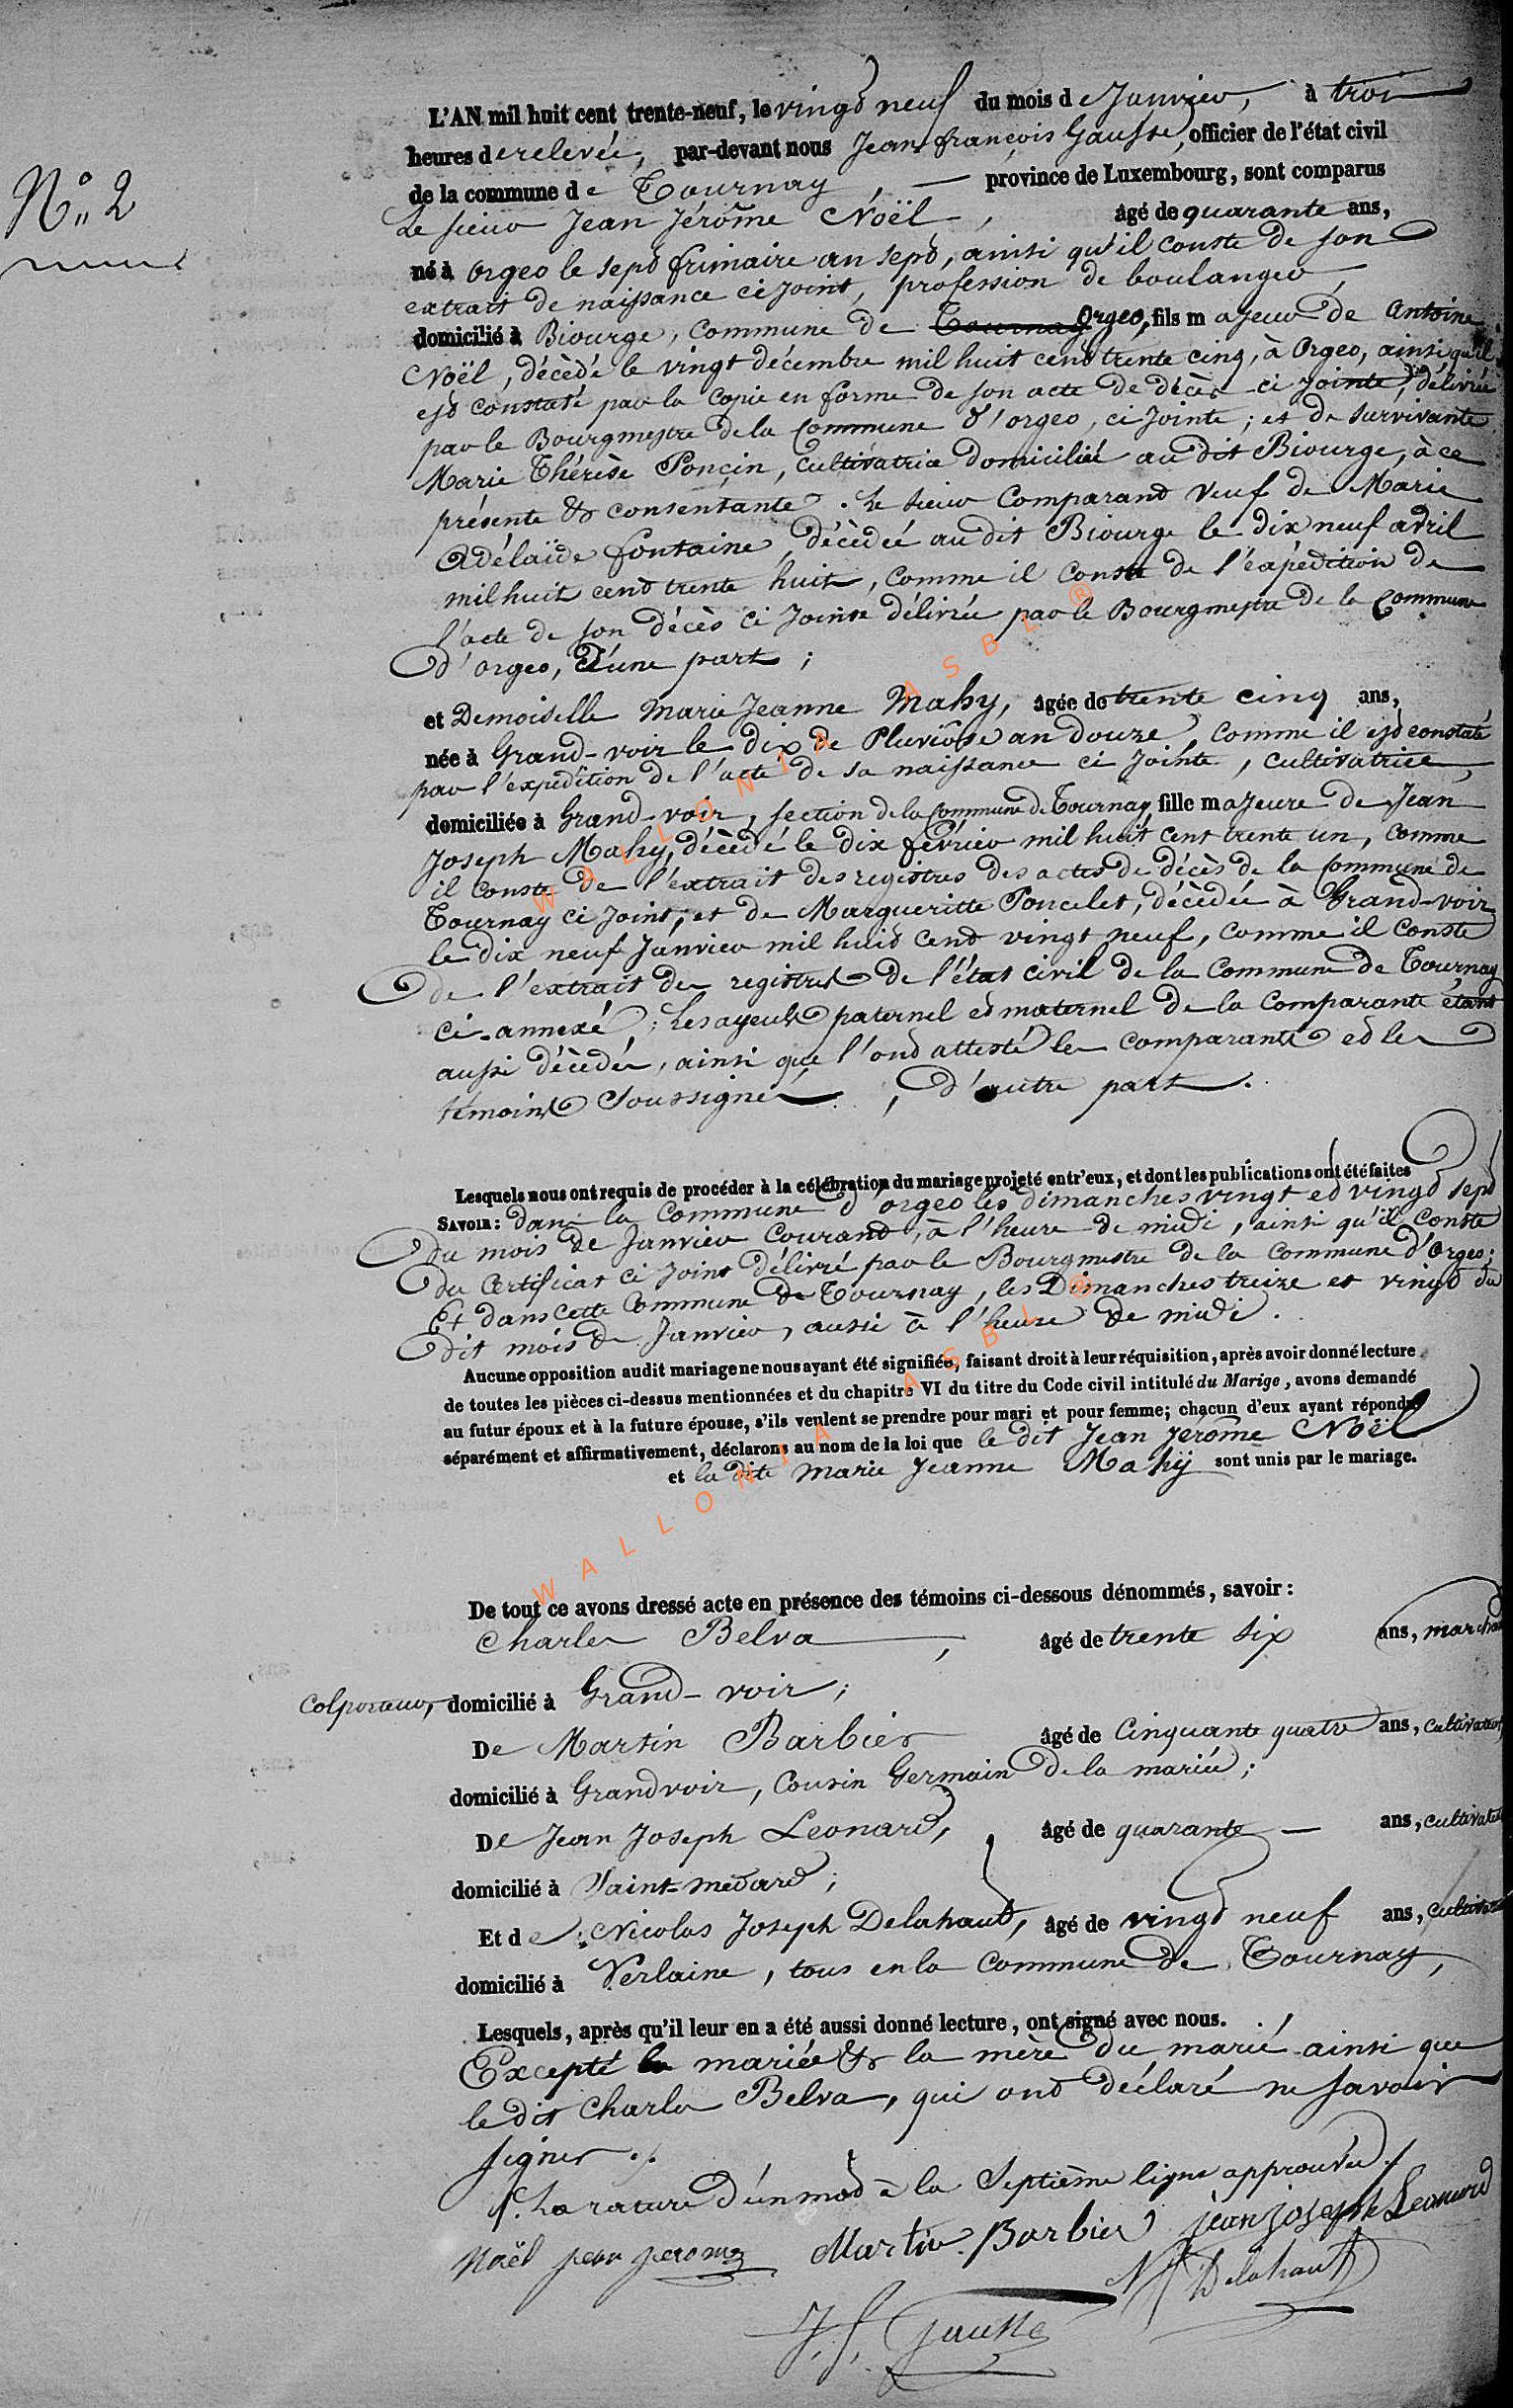 L'AN mil huit cent trente-neuf, le vingt neuf du mois de Janvier, à trois
heures de relevée, par-devant nous Jean françois Gausse, officier de l'état civil
N° 2
de la commune de Tournay, — province de Luxembourg, sont comparus
Le sieur Jean Jérôme Noël, âgé de quarante ans,
né à Orgeo le sept frimaire an sept, ainsi qu'il conste de son
extrait de naissance ci joint, profession de boulanger
domicilié à Biourge, commune de Tournay Orgeo, fils majeur de Antoine
Noël, décèdé le vingt décembre mil huit cent trente cinq, à Orgeo, ainsi qu'il
est constaté par la copie en forme de son acte de décès ci jointe, délivrée
par le Bourgmestre de la Commune d'orgeo, ci jointe; et de survivante
Marie Thérèse Ponçin, cultivatrice domiciliée au dit Biourge, à ce
présente & consentante. Le sieur Comparant Veuf de Marie
Adélaïde fontaine, décèdée au dit Biourge le dix neuf avril
mil huit cent trente huit, comme il conste de l'expédition de
l'acte de son décès ci Jointe délivrée par le Bourgmestre de la Commune
d'orgeo, d'une part;
et Demoiselle Marie Jeanne Mahy, âgée de trente cinq ans,
née à Grand-voir le dix de Pluviôse an douze, comme il est constaté
par l'expédition de l'acte de sa naissance ci Jointe, cultivatrice,
domiciliée à Grand-voir, section de la Commune de Tournay, fille majeure de Jean
Joseph Mahy, décèdé le dix février mil huit cent trente un, comme
il conste de l'extrait des registres des actes de décès de la Commune de
Tournay ci Joint, et de Margueritte Poncelet, décèdée à Grand-voir
le dix neuf Janvier mil huit cent vingt neuf, comme il conste
de l'extrait des registres de l'état civil de la Commune de Tournay
ci-annexé; Les ayeuls paternel et maternel de la Comparante étant
aussi décèdés, ainsi que l'ont attesté la comparante et les
témoins soussignés, d'autre part.
Lesquels nous ont requis de procéder à la célébration du mariage projeté entr'eux, et dont les publications ont été faites
SAVOIR: dans la Commune d'orgeo les dimanches vingt et vingt sept
du mois de Janvier Courant, à l'heure de midi, ainsi qu'il Conste
du Certificat ci Joint délivré par le Bourgmestre de la Commune d'Orgeo;
Et dans cette Commune de Tournay, les Dimanches treize et vingt du
dit mois de Janvier, aussi à l'heure de midi.
Aucune opposition audit mariage ne nous ayant été signifiée, faisant droit à leur réquisition, après avoir donné lecture
de toutes les pièces ci-dessus mentionnées et du chapitre VI du titre du Code civil intitulé du Marige, avons demandé
au futur époux et à la future épouse, s'ils veulent se prendre pour mari et pour femme; chacun d'eux ayant répondu
séparément et affirmativement, déclarons au nom de la loi que le dit Jean Jérôme Noël
et la dite Marie Jeanne Mahy sont unis par le mariage.
De tout ce avons dressé acte en présence des témoins ci-dessous dénommés, savoir:
Charles Belva, âgé de trente six ans, marchand
Colporteur, domicilié à Grand-voir;
De Martin Barbier âgé de Cinquante quatre ans, cultivateur,
domicilié à Grandvoir, Cousin Germain de la mariée;
De Jean Joseph Leonard, âgé de quarante — ans, cultivateur
domicilié à Saint-medard;
Et de Nicolas Joseph Delahaut, âgé de vingt neuf ans, cultivateur
domicilié à Verlaine, tous en la Commune de Tournay,
Lesquels, après qu'il leur en a été aussi donné lecture, ont signé avec nous.
Excepté la mariée & la mère du marié ainsi que
le dit Charles Belva, qui ont déclaré ne savoir
signer ./.
/. La rature d'un mot à la Septième ligne approuvée ./
Noël jean jerome Martin Barbier jean joseph Leonard
NJ Delahaut
J. f. Gausse
WALLONIA ASBL ®
WALLONIA ASBL ®